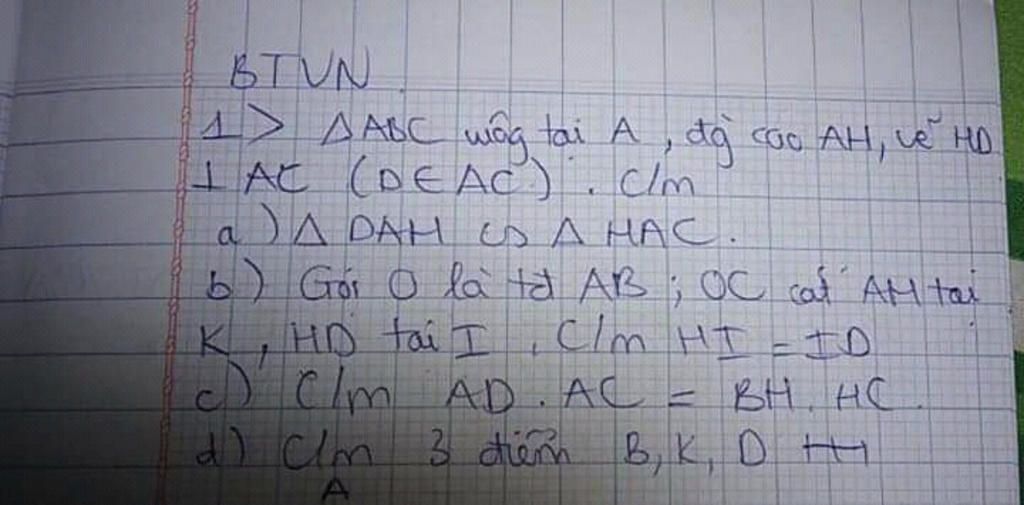 BTVN
1> ΔABC wôg tại A, đg cao AH, vẽ HD
⊥ AC (D ∈ AC). C/m
a) Δ DAH ∽ Δ HAC.
b) Gọi O là tđ AB; OC cắt AH tại
K, HD tại I. C/m HI = ID
c) C/m AD. AC = BH. HC.
d) C/m 3 điểm B, K, D
A